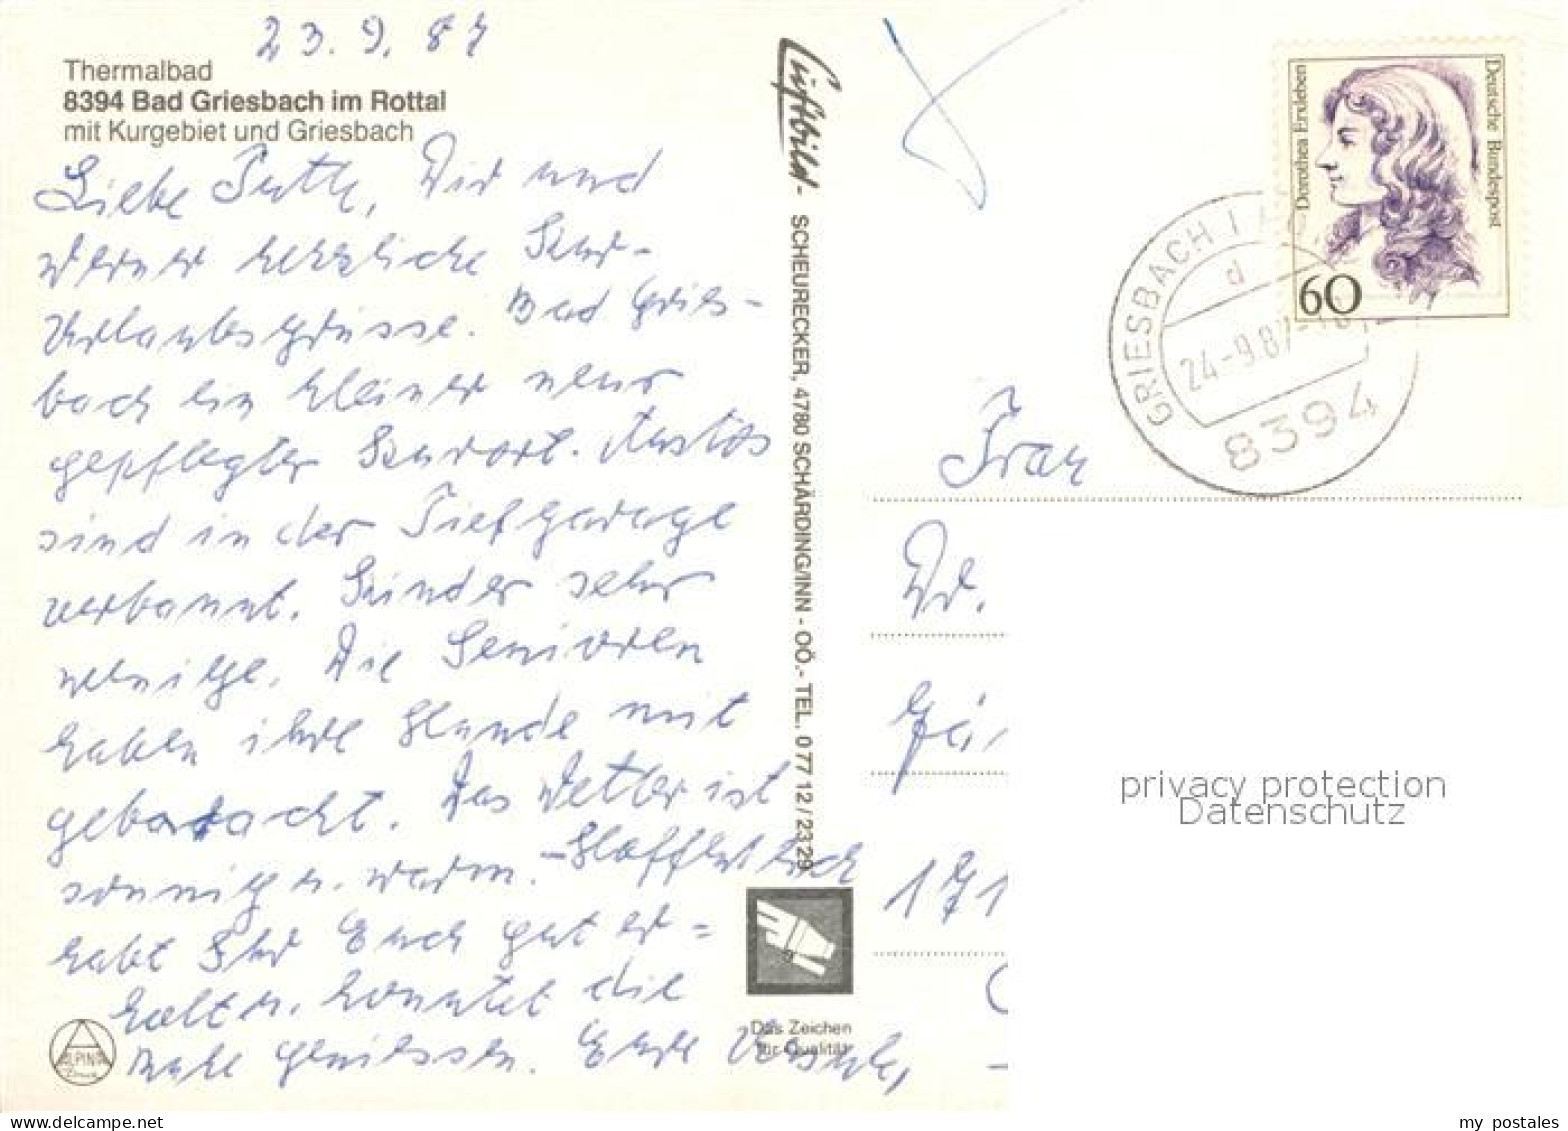 23.9.87
Thermalbad
8394 Bad Griesbach im Rottal
mit Kurgebiet und Griesbach
Liebe Jutta, Dir und
Werner herzliche Kur-
Urlaubsgrüsse. Bad Gries-
bach ein kleiner neuer
gepflegter Kurort. Autos
sind in der Tiefgarage
verbannt. Kinder sehr
wenige. Die Senioren
haben ihre Hunde mit
gebracht. Das Wetter ist
sonnig u. warm. – Hoffentlich
habt Ihr Euch gut er=
holt u. konntet die
Ruhe geniessen. Eure Ursula,
Luftbild-
SCHEURECKER, 4780 SCHÄRDING/INN - OÖ.- TEL. 0 77 12 / 23 29
Das Zeichen
für Qualität
ALPINA
Druck
Deutsche Bundespost
Dorothea Erxleben
60
GRIESBACH I
d
24-9.87-18
8394
Frau
Dr.
171
privacy protection
Datenschutz
my postales